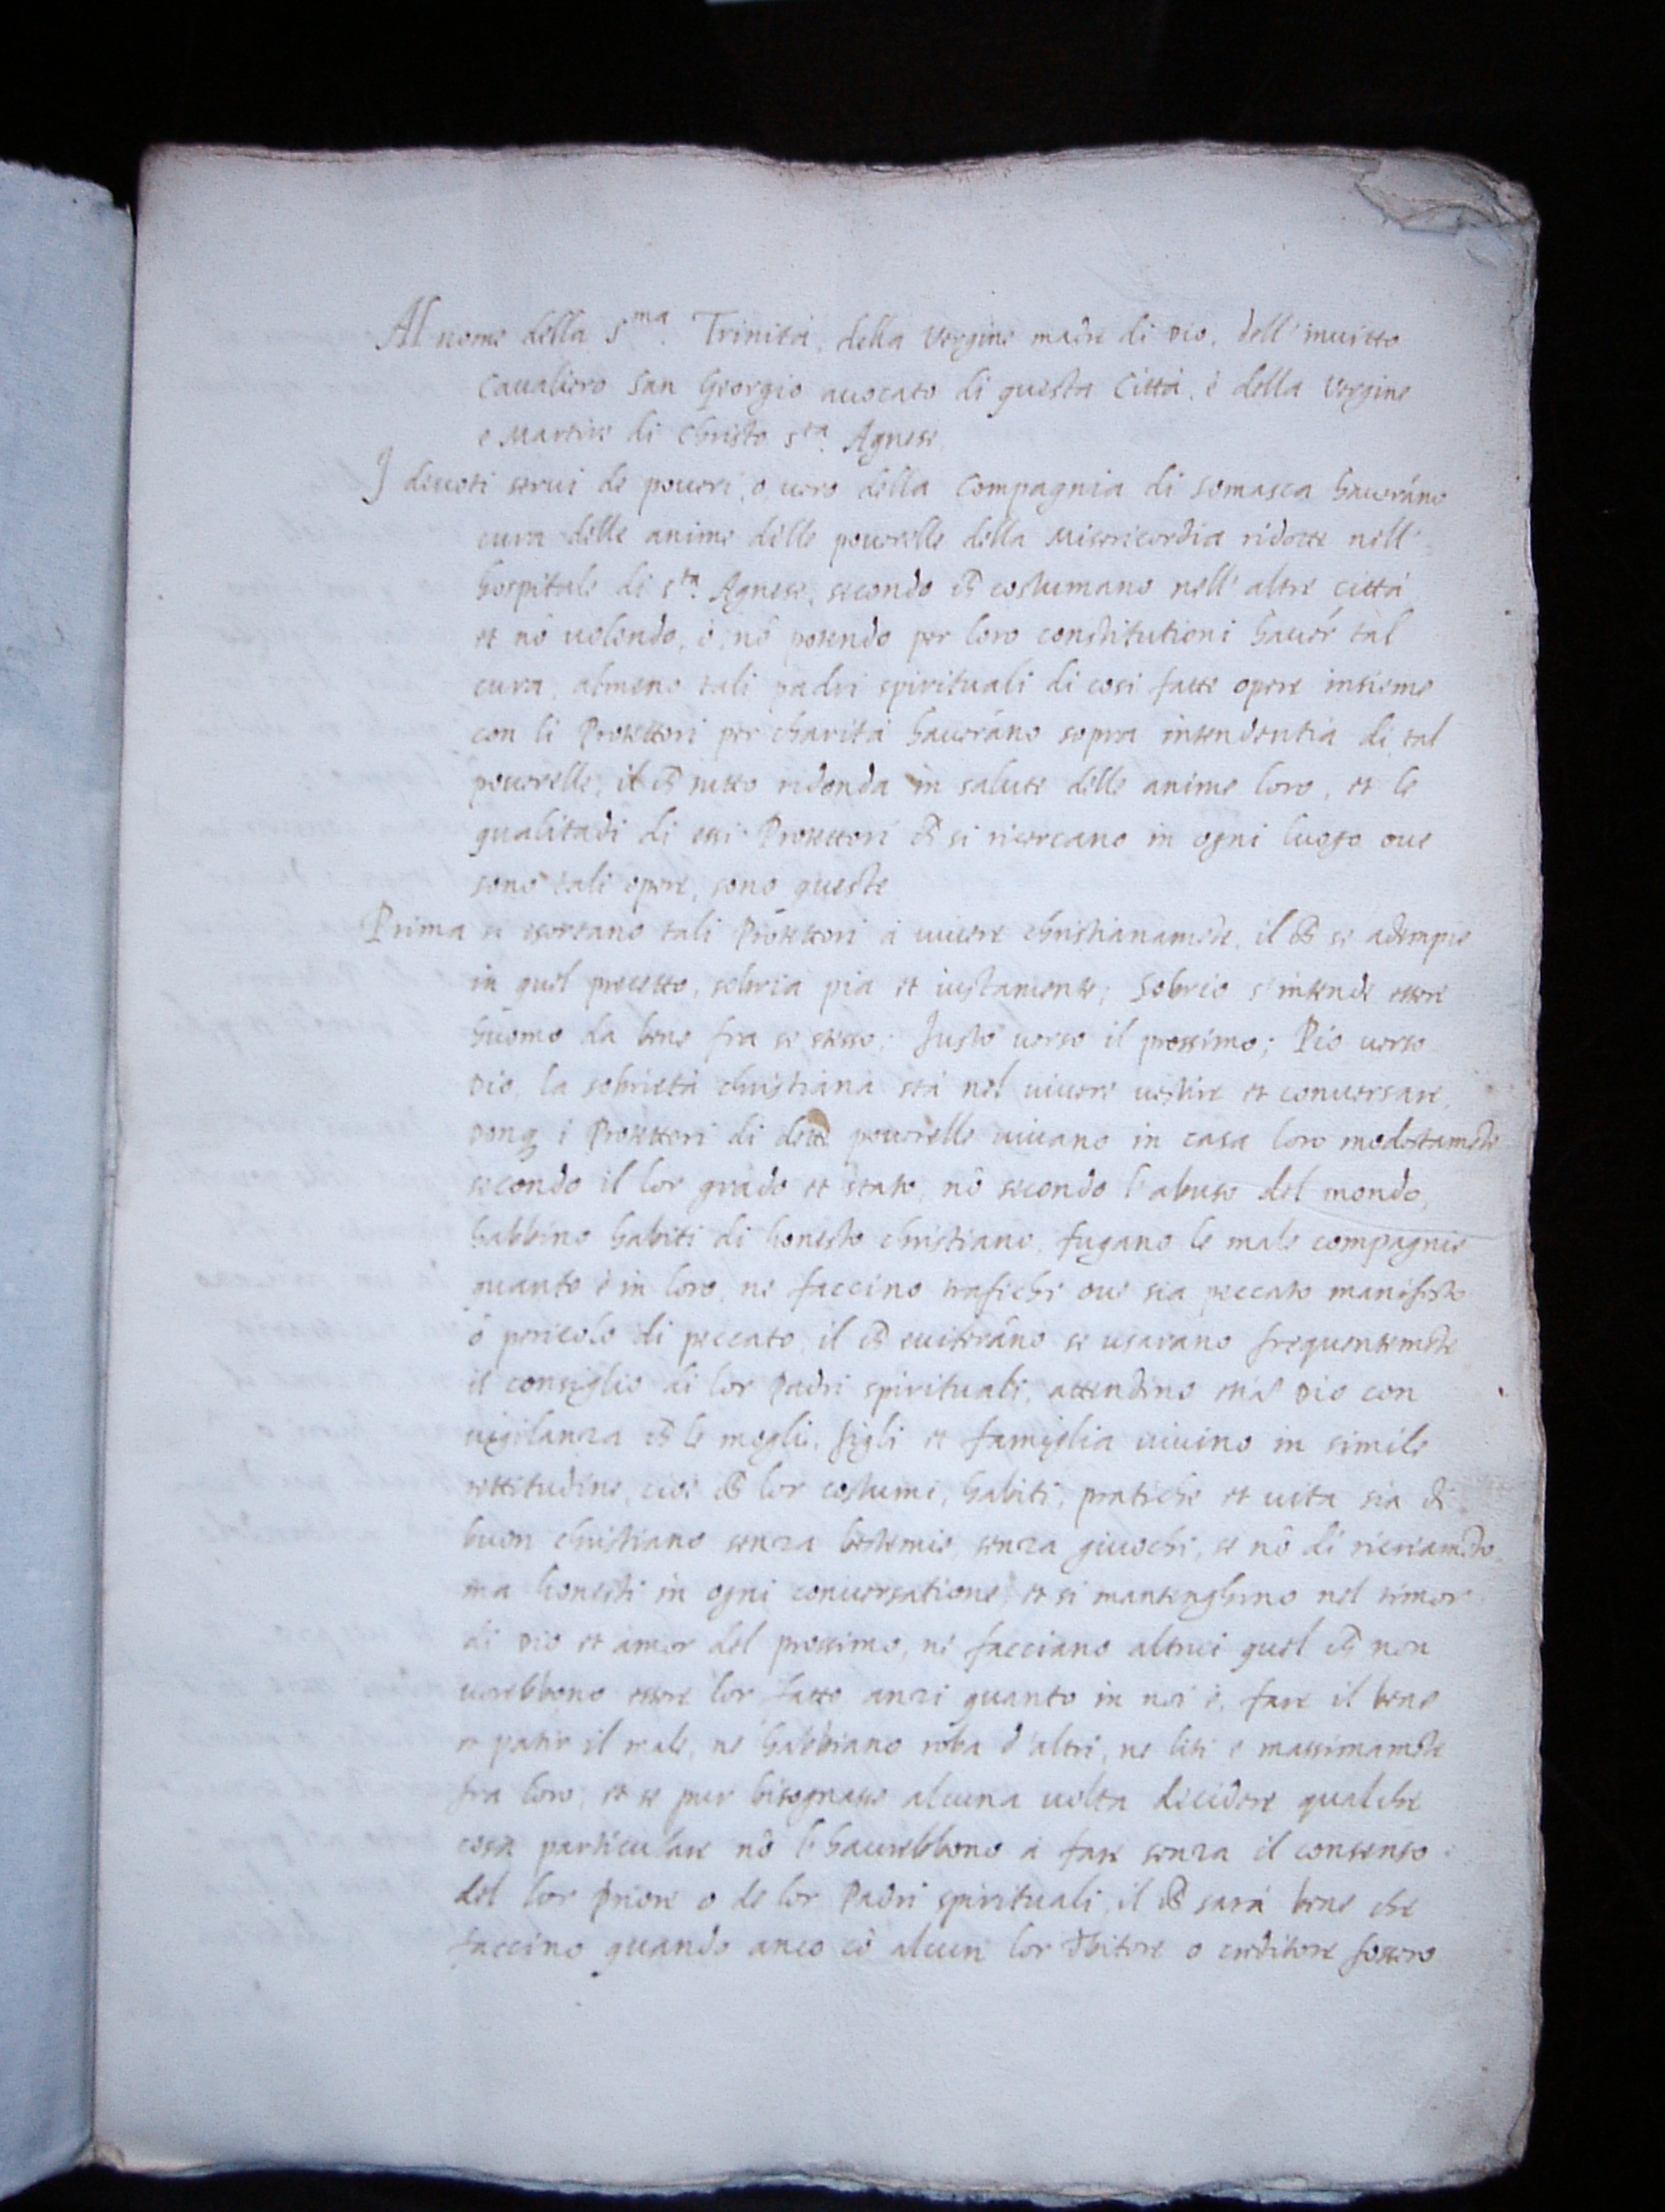 Al nome della S.ma Trinità, della Vergine madre di Dio, dell' inuitto
Caualiero San Georgio auocato di questa Città, è della Vergine
e Martire di Christo S.ta Agnese.
I deuoti serui de poueri, o uero della Compagnia di Somasca haueráno
cura delle anime delle pouerelle della Misericordia ridotte nell'
hospitale di S.ta Agnese, secondo ch̄ costumano nell' altre città
et nõ uolendo, ò, nõ potendo per loro constitutioni hauer tal
cura, almeno tali padri spirituali di cosi fatte opere insieme
con li Protettori per charità haueráno sopra intendentia di tal
pouerelle; il ch̄ tutto ridonda in salute delle anime loro, et le
qualitadi di essi Protettori ch̄ si ricercano in ogni luogo oue
sono tali opere, sono queste
Prima si esortano tali Protettori à uiuere christianamẽte, il ch̄ se adempie
in quel precetto, sobria pia et iustamente; Sobrio s'intende essere
huomo da bene fra se stesso; Justo uerso il prossimo; Pio uerso
Dio, la sobrietà christiana stà nel uiuere uestire et conuersare,
Donq̃ i Protettori di dette pouerelle uiuano in casa loro modestamẽte
secondo il lor grado et stato, nõ secondo l'abuso del mondo,
habbino habiti di honesto christiano, fugano le male compagnie
quanto è in loro, ne faccino trafichi oue sia peccato manifesto
ò pericolo di peccato, il ch̄ euiteráno se usarano frequentemẽte
il consiglio di lor Padri spirituali, attendino Dio con
uigilanza ch̄ le moglie, figli et famiglia uiuino in simile
rettitudine, cioè ch̄ lor costumi, habiti, pratiche et uita sia di
buon christiano senza bestemie, senza giuochi, se nõ di ricriamẽto,
ma honesti in ogni conuersatione, et si mantenghino nel timor
di Dio et amor del prossimo, ne facciano altrui quel ch̄ non
uorebbono essere lor fatto, anzi quanto in noi è, fare il bene
et patir il male, ne habbiano roba d'altri, ne liti e massimamẽte
fra loro; et se pur bisognasse alcuna uolta decidere qualche
cosa particulare nõ l'haurebbono à fare senza il consenso
del lor Priore o de lor Padri spirituali, il ch̄ sarà bene che
faccino quando anco cõ alcun lor debitore o creditore fossero